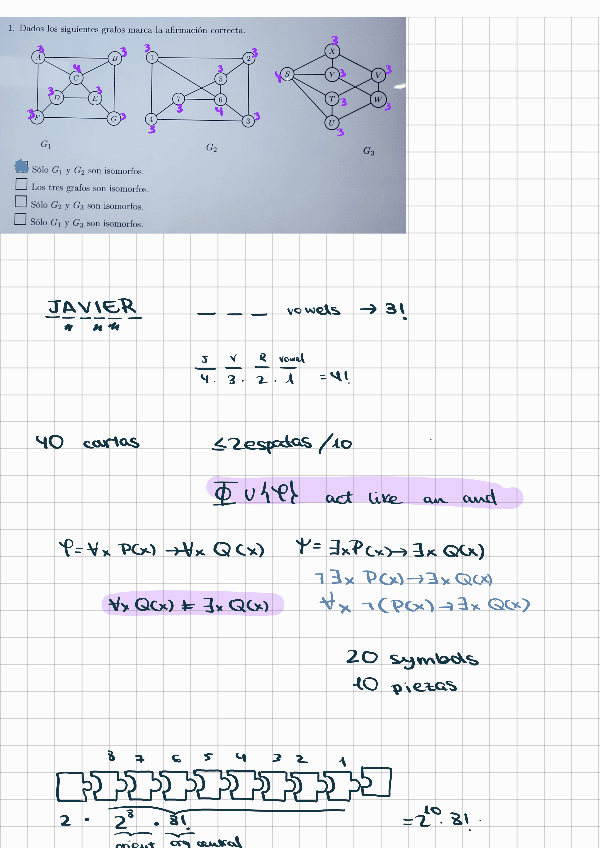 1. Dados los siguientes grafos marca la afirmación correcta.
3 3 3 3 3
A B 1 2 X
4 C 3 5 4 S Y 3 V 3
3 D E 3 7 6 T 3 W 3
3 F G 3 4 3 3 U
3 4 3 3
G₁ G₂ G₃
Sólo G₁ y G₂ son isomorfos.
Los tres grafos son isomorfos.
Sólo G₂ y G₃ son isomorfos.
Sólo G₁ y G₃ son isomorfos.
JAVIER _ _ _ vowels → 3!
J V R vowel
4 . 3 . 2 . 1 = 4!
40 cartas ≤2 espadas /10
Φ ∪ {φ} act like an and
φ = ∀x P(x) → ∀x Q(x) Ψ = ∃x P(x) → ∃x Q(x)
¬∃x P(x) → ∃x Q(x)
∀x Q(x) ⊨ ∃x Q(x) ∀x ¬(P(x) → ∃x Q(x)
20 symbols
10 piezas
8 7 6 5 4 3 2 1
2 · 2⁸ · 8! = 2¹⁰ · 8!
orient central